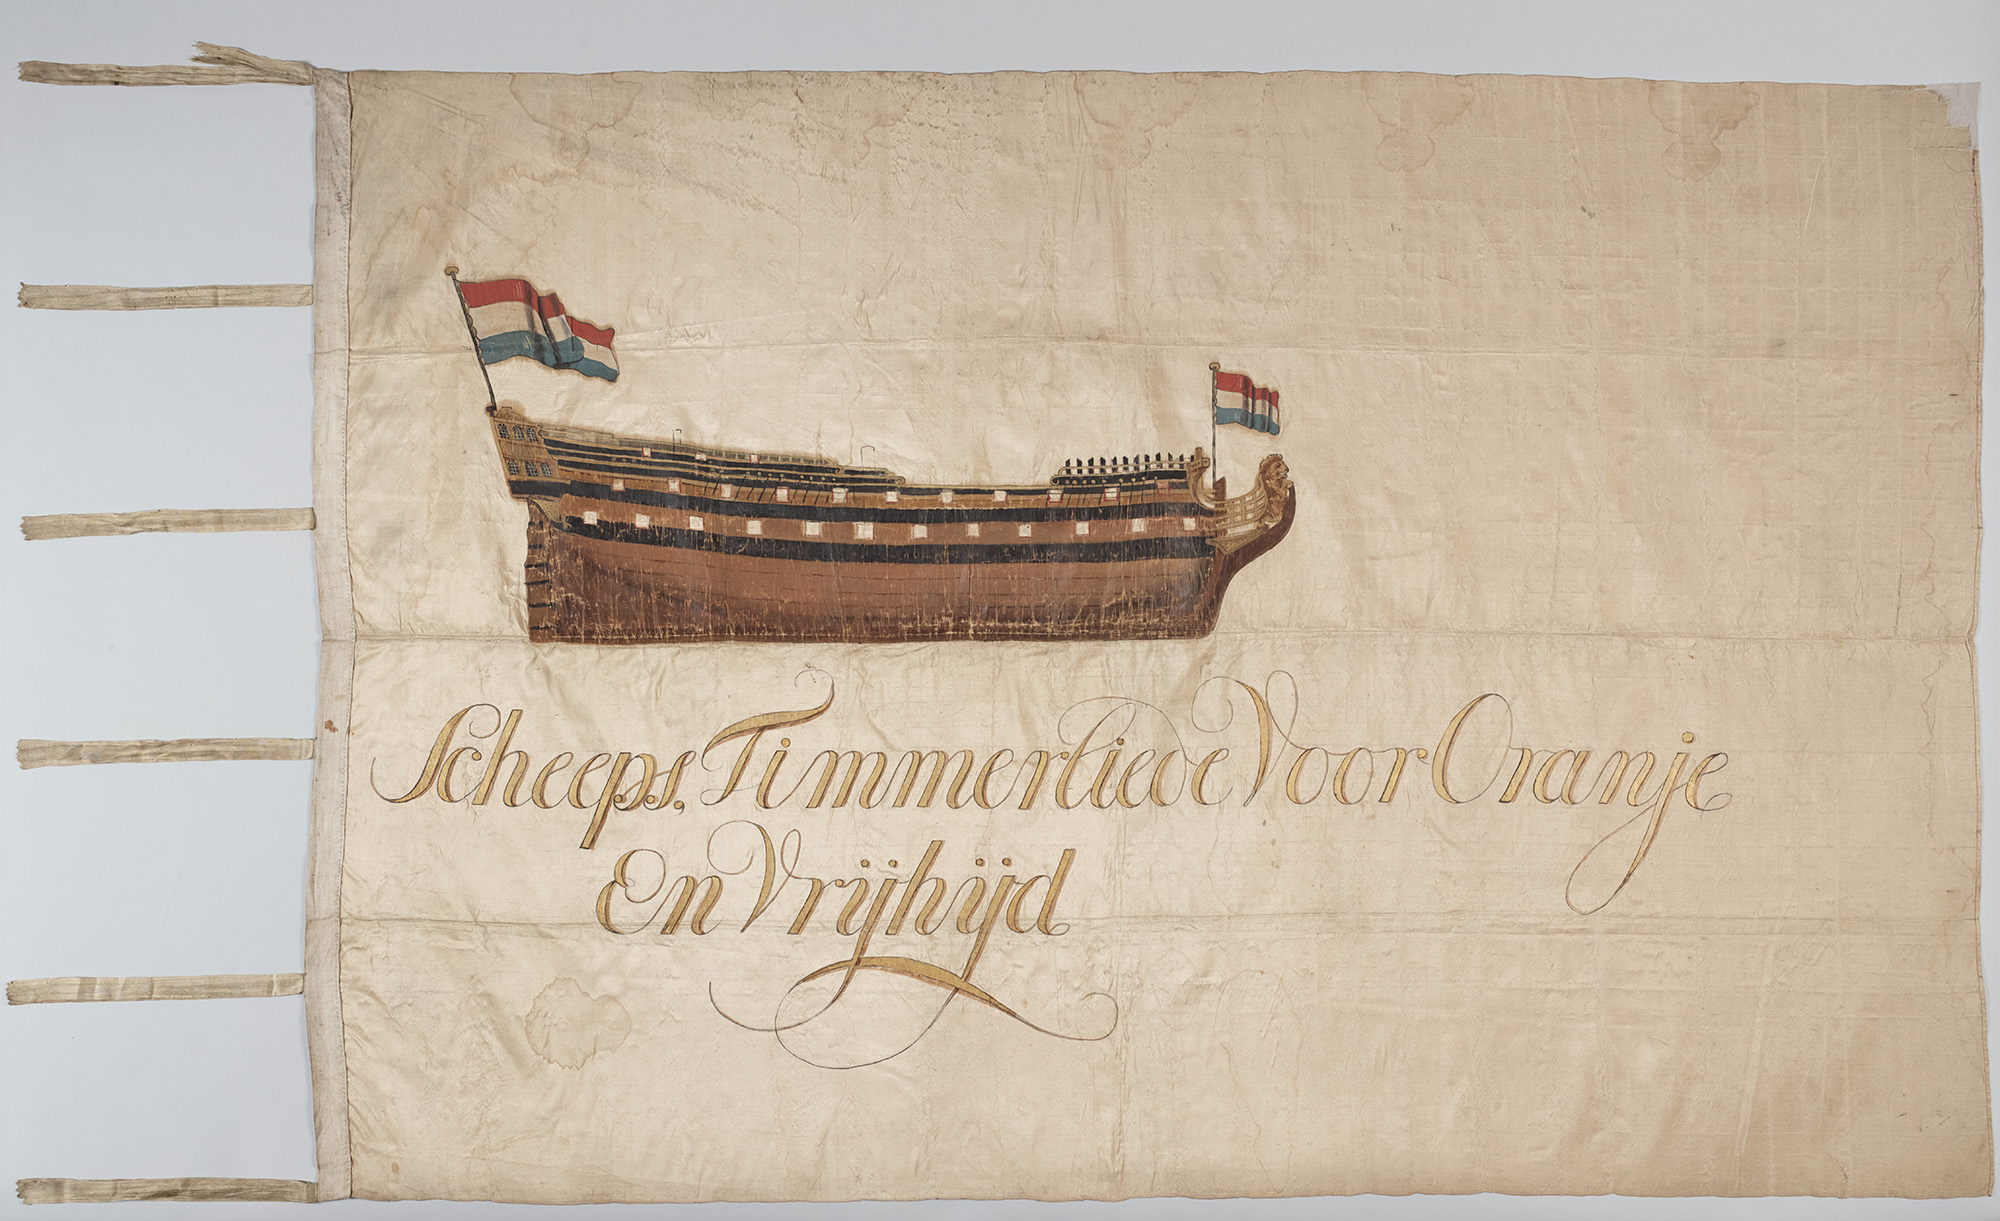 Scheeps. Timmerliede Voor Oranje
En Vrijhijd